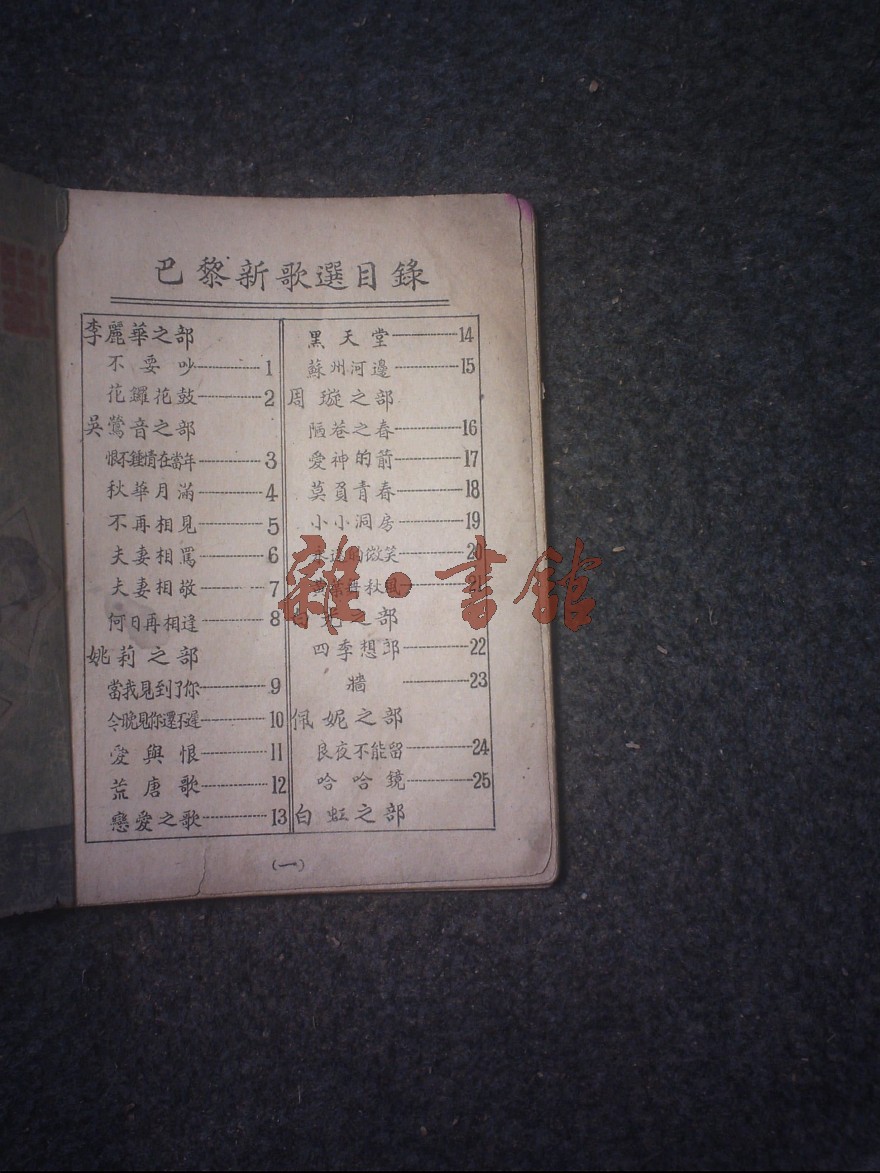 巴黎新歌選目錄
李麗華之部
不要吵 1
花鑼花鼓 2
吳鶯音之部
恨不鍾情在當年 3
秋華月滿 4
不再相見 5
夫妻相罵 6
夫妻相敬 7
何日再相逢 8
姚莉之部
當我見到了你 9
今晚見你還不遲 10
愛與恨 11
荒唐歌 12
戀愛之歌 13
黑天堂 14
蘇州河邊 15
周璇之部
陋巷之春 16
愛神的箭 17
莫負青春 18
小小洞房 19
永遠的微笑 20
再秋風 21
白光之部
四季想郎 22
牆 23
佩妮之部
良夜不能留 24
哈哈鏡 25
白虹之部
(一)
雜·書館